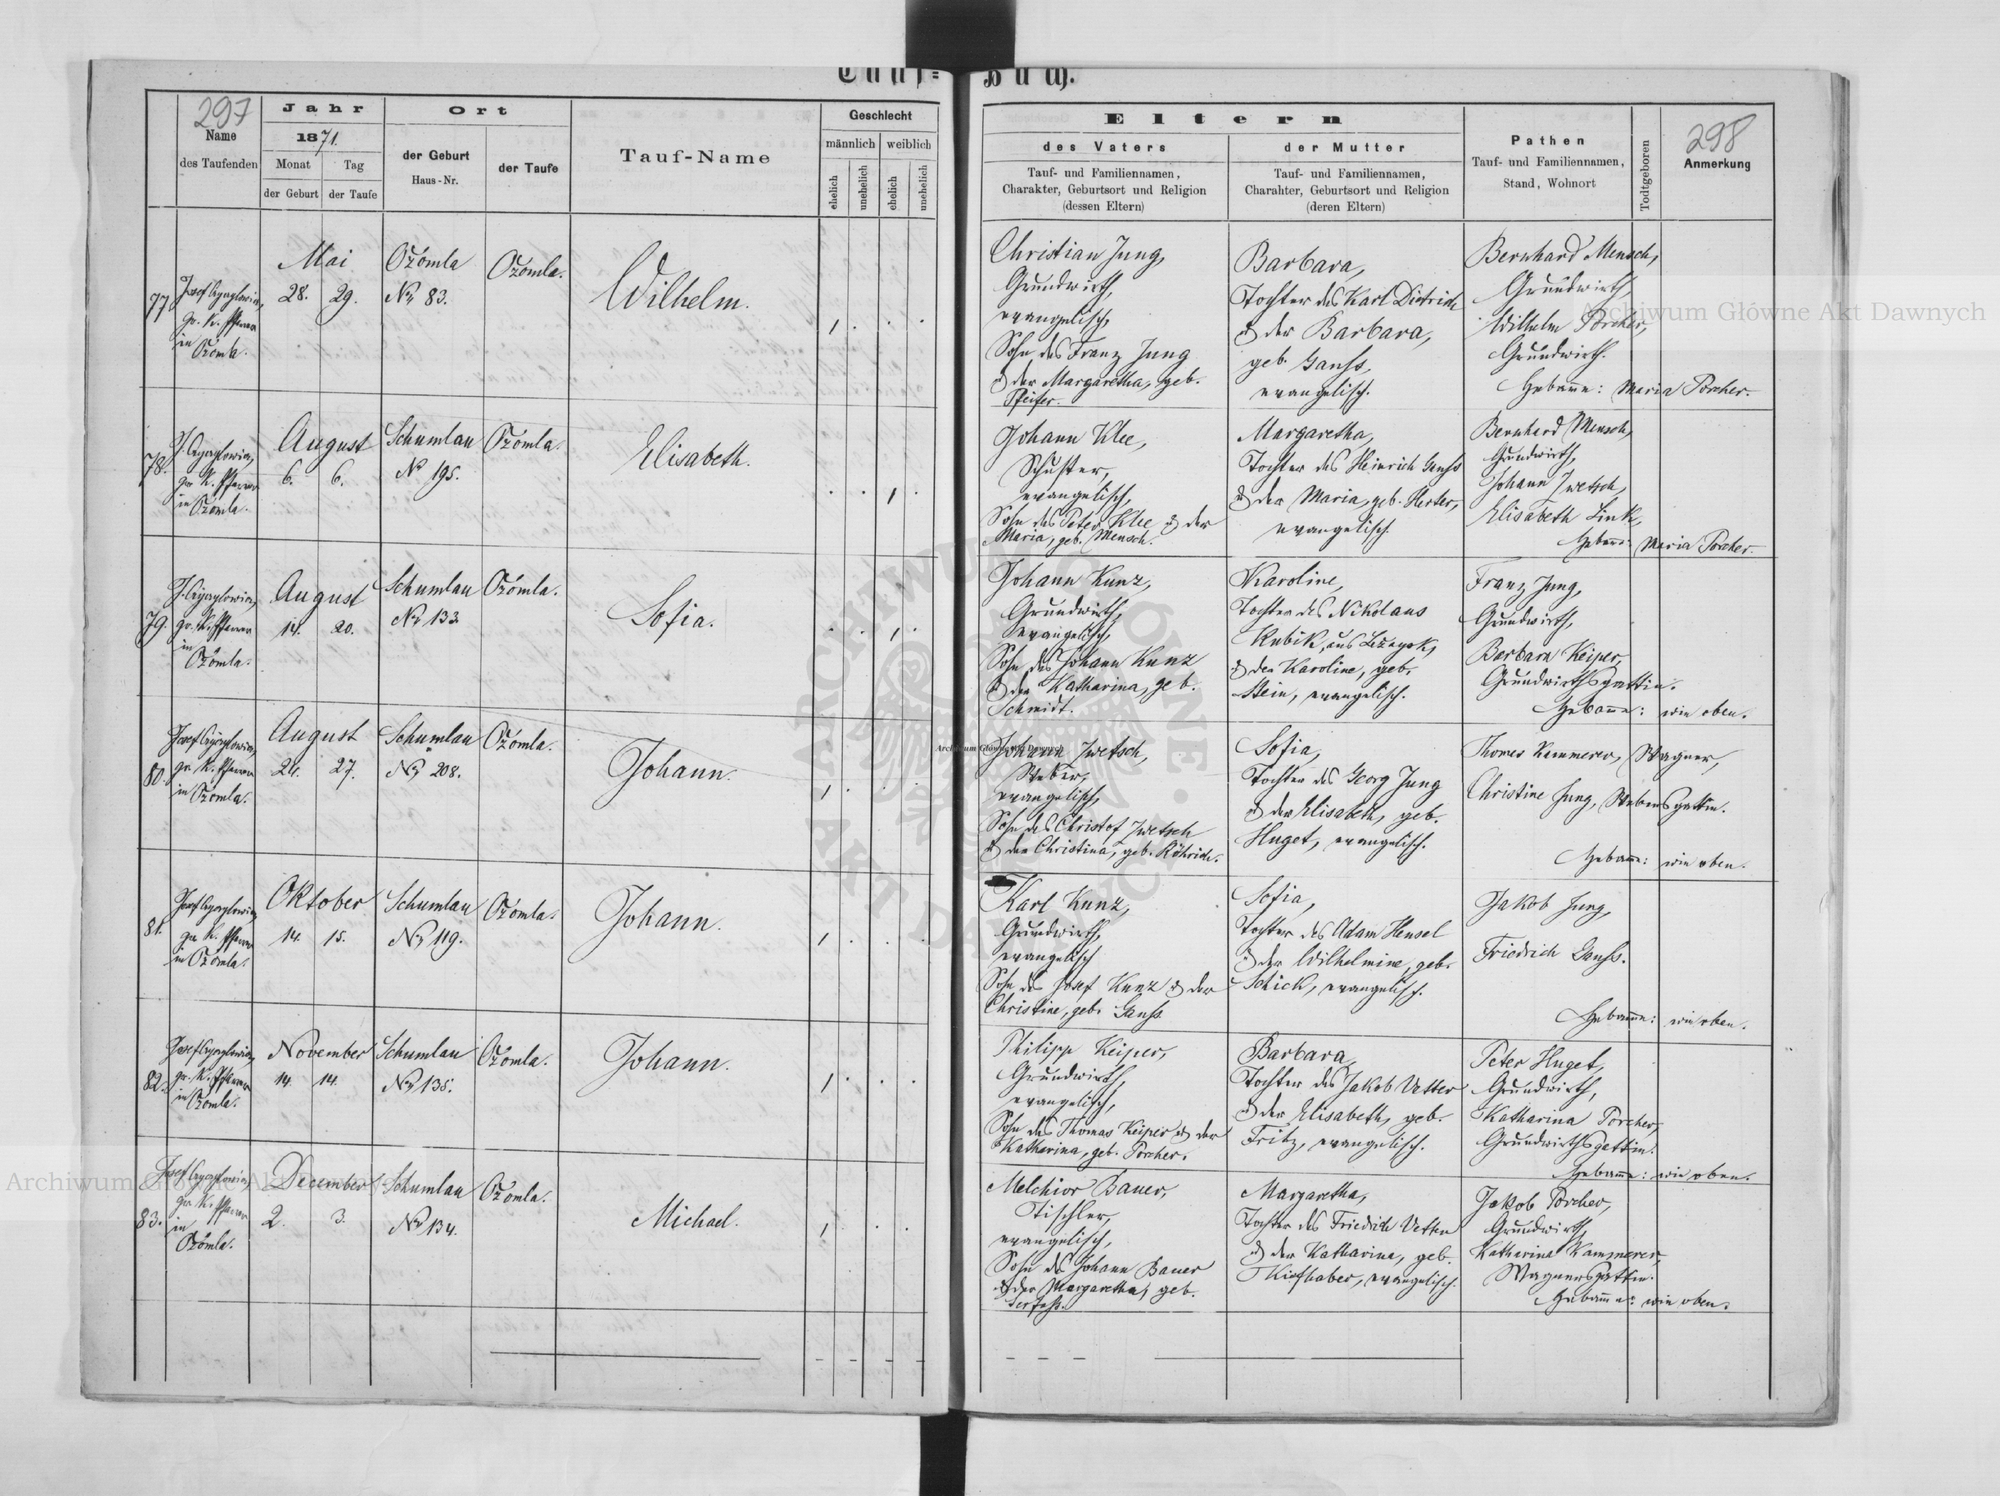 Tauf=Buch.
297
Name
des Taufenden
Jahr
1871.
Monat
Tag
der Geburt
der Taufe
Ort
der Geburt
Haus-Nr.
der Taufe
Tauf-Name
Geschlecht
männlich
weiblich
ehelich
unehelich
ehelich
unehelich
Eltern
des Vaters
Tauf- und Familiennamen,
Charakter, Geburtsort und Religion
(dessen Eltern)
der Mutter
Tauf- und Familiennamen,
Charahter, Geburtsort und Religion
(deren Eltern)
Pathen
Tauf- und Familiennamen,
Stand, Wohnort
Todtgeboren
298
Anmerkung
77
Josef
gr. k. Pfarrer
in
Ozomla.
Mai
28. 29.
Ozómla
No 83.
Ozómla.
Wilhelm.
Christian Jung,
Grundwirth,
evangelisch,
Sohn des Franz Jung
& der Margaretha, geb.
Pfeifer.
Barbara,
Tochter des Karl Dietrich
& der Barbara,
geb. Ganss,
evangelisch.
Bernhard Mensch,
Grundwirth,
Wilhelm Porcher,
Grundwirth.
Hebamme: Maria Porcher.
78.
gr. k. Pfarrer
in Ozomla.
August
6. 6.
Schumlau
No 195.
Ozómla.
Elisabeth.
Johann Klee,
Schuster,
evangelisch,
Sohn des Peter Klee & der
Maria, geb. Mensch.
Margaretha,
Tochter des Heinrich Ganss
& der Maria, geb. Herter,
evangelisch.
Bernhard Mensch,
Grundwirth,
Johann Zwetsch,
Elisabeth Link,
Hebamme: Maria Porcher.
79.
gr. k. Pfarrer
in
Ozómla.
August
14. 20.
Schumlau
No 133.
Ozómla.
Sofia.
Johann Kunz,
Grundwirth,
evangelisch,
Sohn des Johann Kunz
& der Katharina, geb.
Schmidt.
Karoline,
Tochter des Nikolaus
Kubik, aus
& der Karoline, geb.
Stein, evangelisch.
Franz Jung,
Grundwirth,
Barbara Keiper,
Grundwirthsgattin.
Hebamme: wie oben.
80.
Josef
gr. k. Pfarrer
in Ozómla.
August
24. 27.
Schumlau
No 208.
Ozómla.
Johann.
Johann Zwetsch,
Weber,
evangelisch,
Sohn des Christof Zwetsch
& der Christina, geb. Röhrich.
Sofia,
Tochter des Georg Jung
& der Elisabeth, geb.
Huget, evangelisch.
Thomas Kammerer, Wagner,
Christine Jung, Webersgattin.
Hebamme: wie oben.
81.
Josef
gr. k. Pfarrer
in Ozomla.
Oktober
14. 15.
Schumlau
No 119.
Ozómla.
Johann.
Karl Kunz,
Grundwirth,
evangelisch
Sohn des Josef Kunz & der
Christine, geb. Ganss
Sofia,
Tochter des Adam Hensel
& der Wilhelmine, geb.
Schick, evangelisch.
Jakob Jung,
Friedrich Ganss.
Hebamme: wie oben.
82.
Josef
gr. k. Pfarrer
in
Ozomla.
November
14. 14.
Schumlau
No 135.
Ozómla.
Johann.
Philipp Keiper,
Grundwirth,
evangelisch,
Sohn des Thomas Keiper & der
Katharina, geb. Porcher.
Barbara,
Tochter des Jakob Vetter
& der Elisabeth, geb.
Fritz, evangelisch.
Peter Huget,
Grundwirth,
Katharina Porcher,
Grundwirthsgattin.
Hebamme: wie oben.
83.
Josef
gr. k. Pfarrer
in
Ozómla.
December
2. 3.
Schumlau
No 134.
Ozómla.
Michael.
Melchior Bauer,
Tischler,
evangelisch,
Sohn des Johann Bauer
& der Margaretha, geb.
Margaretha,
Tochter des Friedrich Vetter
& der Katharina, geb.
Kirfhaber, evangelisch.
Jakob Porcher,
Grundwirth,
Katharina Kammerer,
Wagnersgattin.
Hebamme: wie oben.
Archiwum Główne Akt Dawnych
Archiwum Główne Akt Dawnych
Archiwum Główne Akt Dawnych
ARCHIWUM GŁÓWNE AKT DAWNYCH